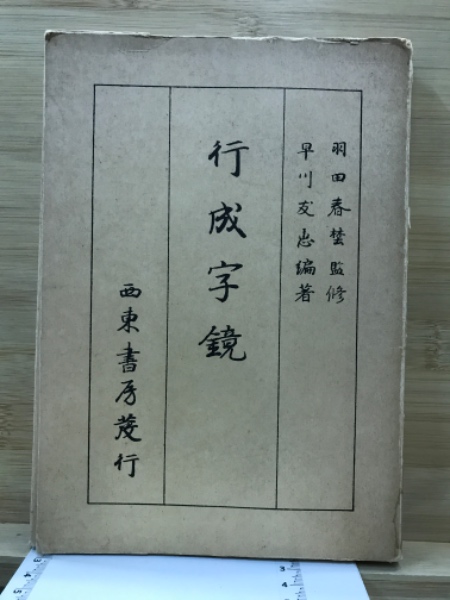 羽田春埜監修
早川友忠編著
行成字鏡
西東書房發行